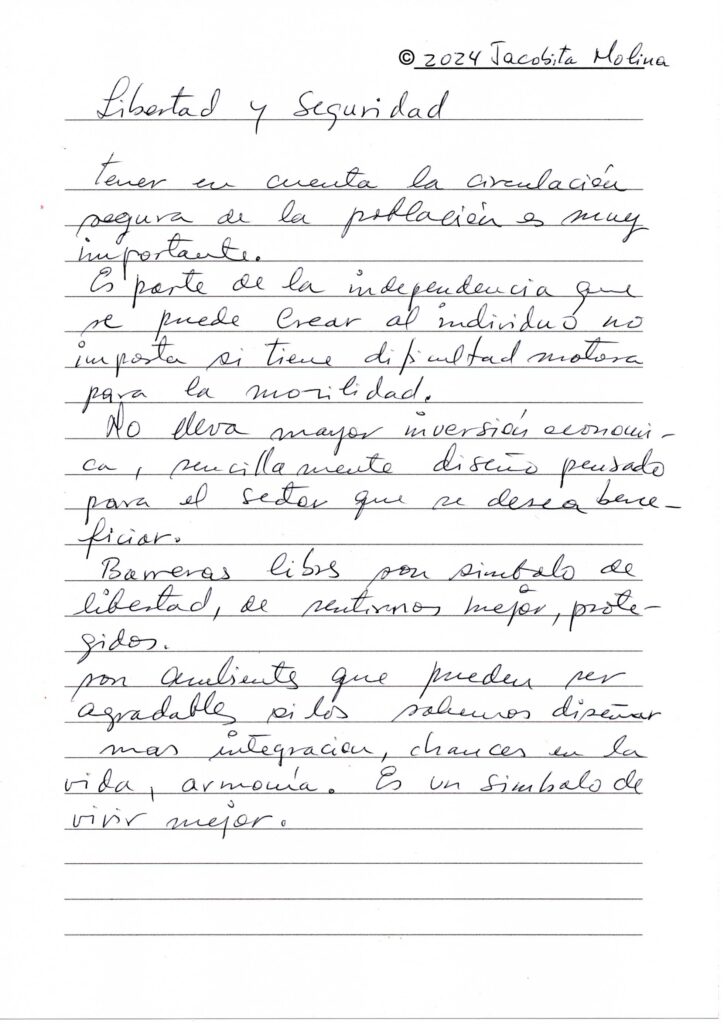 © 2024 Jacobita Molina
Libertad y Seguridad
tener en cuenta la circulación
segura de la población es muy
importante.
Es parte de la independencia que
se puede Crear al individuo no
importa si tiene dificultad motora
para la movilidad.
No lleva mayor inversión económi-
ca, sencillamente diseño pensado
para el sector que se desea bene-
ficiar.
Barreras libres son simbolo de
libertad, de sentirnos mejor, prote-
gidos.
son ambientes que pueden ser
agradables si los sabemos diseñar
mas integracion, chances en la
vida, armonía. Es un simbolo de
vivir mejor.